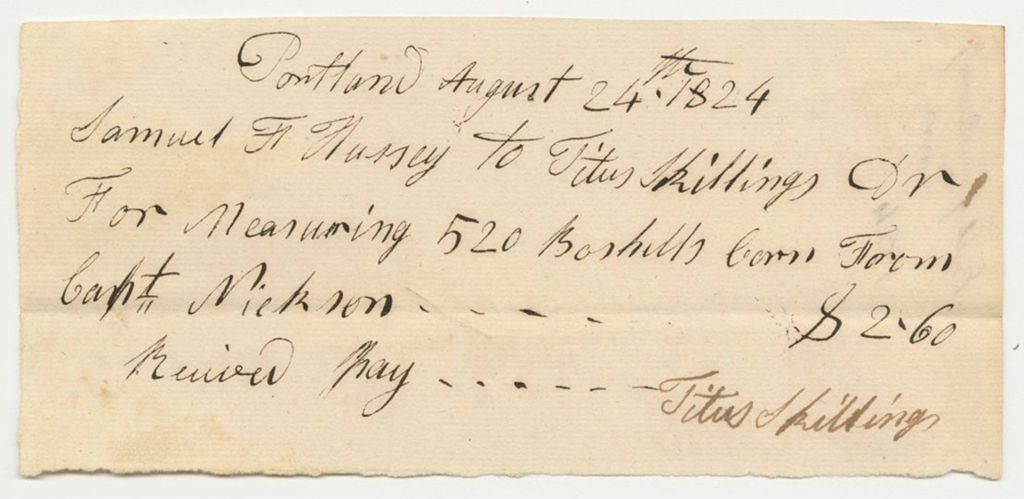 Portland August 24th. 1824
Samuel F Hussey to Titus Skillings Dr
For Measuring 520 Boshells Corn From
Capt Nickson - - - - - $ 2.60
Reuived Pay - - - - - -
Titus Skillings